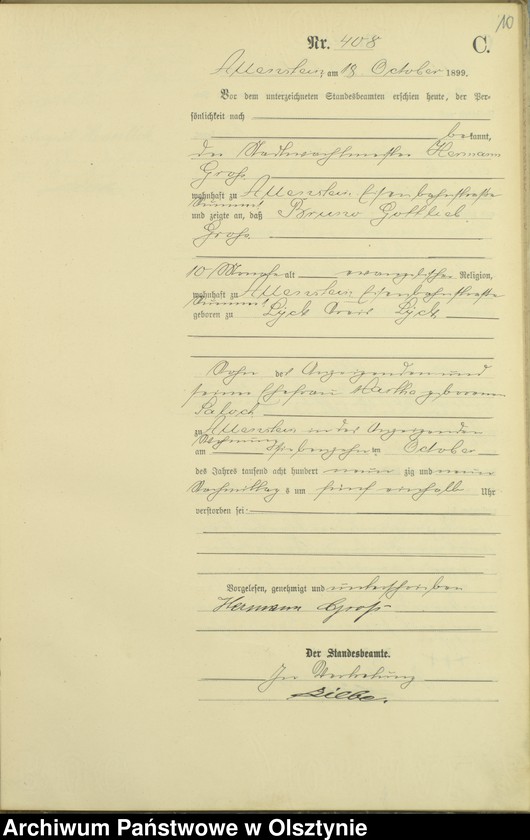 10
Nr. 408
C.
Allenstein, am 18 October 1899.
Vor dem unterzeichneten Standesbeamten erschien heute, der Per-
sönlichkeit nach
bekannt,
der Stadtwachtmeister Hermann
Groß
wohnhaft zu Allenstein Eisenbahnstraße
und zeigte an, daß Bruno Gottlieb
Groß
10 Monate alt evangelischer Religion,
wohnhaft zu Allenstein Eisenbahnstraße
geboren zu Lyck Kreis Lyck
Sohn des Anzeigenden und
seiner Ehefrau Martha geborenen
zu Allenstein in des Anzeigenden
Wohnung
am siebenzehnten October
des Jahres tausend acht hundert neun zig und neun
Nachmittags um fünf einhalb Uhr
verstorben sei
Vorgelesen, genehmigt und unterschrieben
Hermann Groß
Der Standesbeamte.
In Vertretung
Archiwum Państwowe w Olsztynie